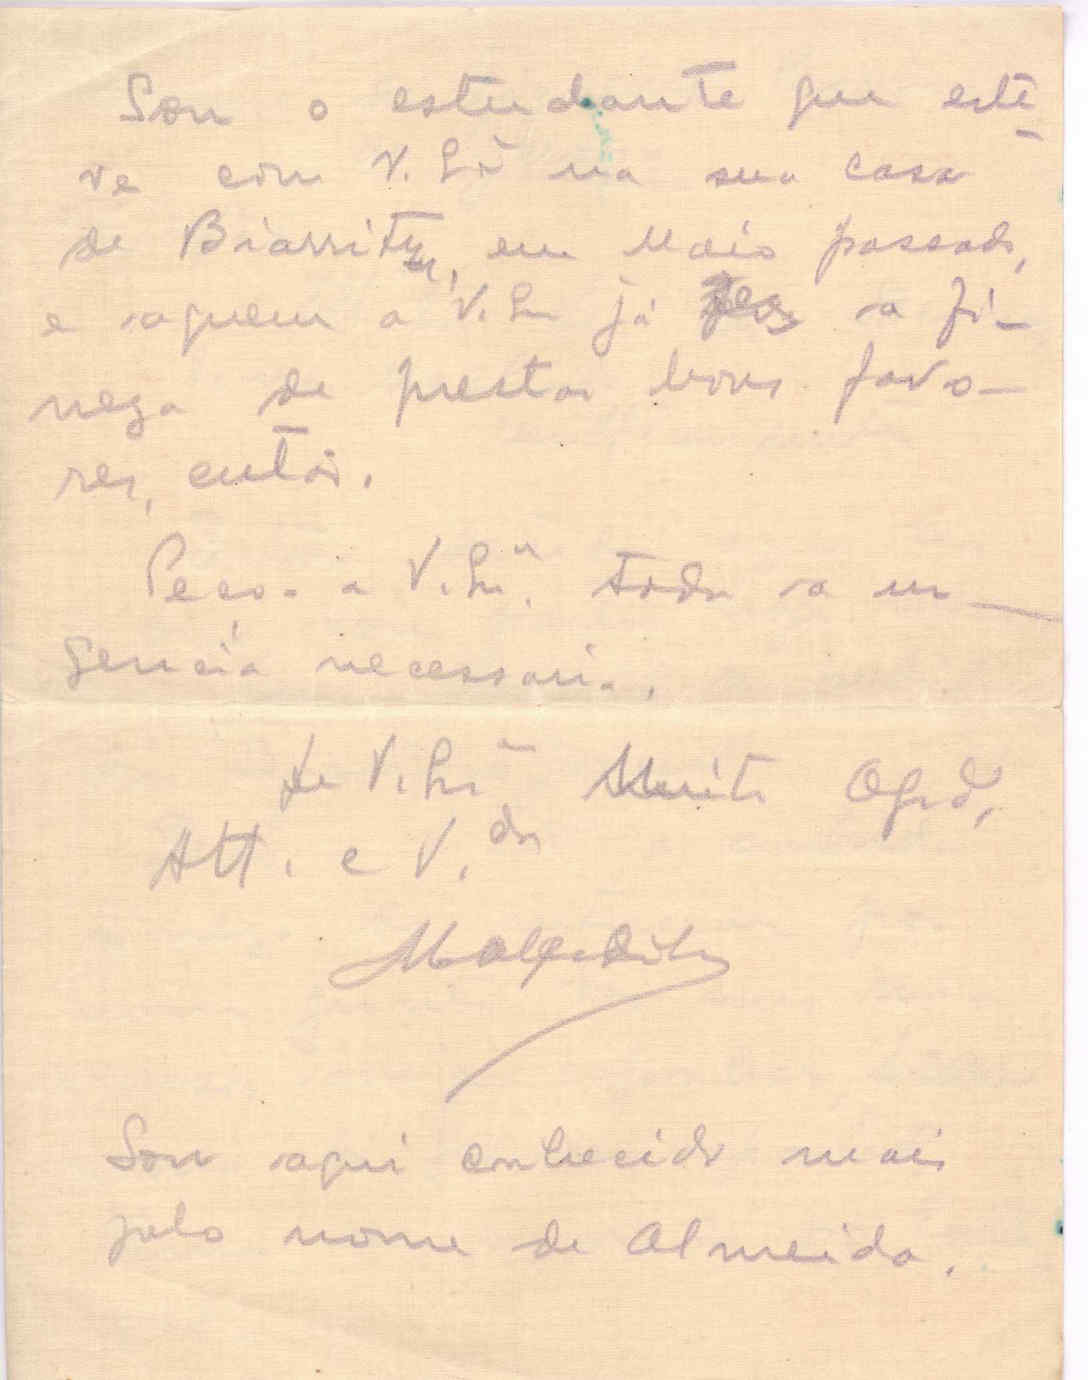 Sou o estudante que esti-
ve com V. Exª na sua casa
de Biarritz, em Maio passado,
e a quem a V. Ex já fez a fi-
neza de prestar bons favo-
res, então.
Peço a V. Exª. toda a ur-
gencia necessaria.
De V. Exª Muito Obgdº,
Att. e V.dor
Sou aqui conhecido mais
pelo nome de Almeida.